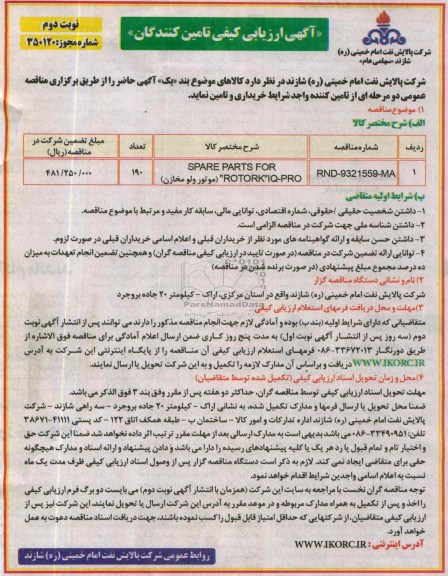 نوبت دوم
شماره مجوز: ۳۵۰۱۲۰
«آگهی ارزیابی کیفی تامین کنندگان»
شرکت پالایش نفت امام خمینی (ره)
شازند «سهامی عام»
شرکت پالایش نفت امام خمینی (ره) شازند در نظر دارد کالاهای موضوع بند «یک» آگهی حاضر را از طریق برگزاری مناقصه
عمومی دو مرحله ای از تامین کننده واجد شرایط خریداری و تامین نماید.
۱) موضوع مناقصه
الف) شرح مختصر کالا
ردیف شماره مناقصه شرح مختصر کالا تعداد مبلغ تضمین شرکت در مناقصه (ریال)
۱ RND-9321559-MA SPARE PARTS FOR "ROTORK"IQ-PRO (موتور ولو مخازن) ۱۹۰ ۴۸۱/۲۵۰/۰۰۰
ب) شرایط اولیه متقاضی
۱- داشتن شخصیت حقیقی/حقوقی، شماره اقتصادی، توانایی مالی، سابقه کار مفید و مرتبط با موضوع مناقصه.
۲- داشتن شناسه ملی جهت شرکت در مناقصه الزامی است.
۳- داشتن حسن سابقه و ارائه گواهینامه های مورد نظر از خریداران قبلی و اعلام اسامی خریداران قبلی در صورت لزوم.
۴- توانایی ارائه تضمین شرکت در مناقصه (در صورت تایید در ارزیابی کیفی مناقصه گران) و همچنین تضمین انجام تعهدات به میزان
ده درصد مجموع مبلغ پیشنهادی (در صورت برنده شدن در مناقصه)
۲) نام و نشانی دستگاه مناقصه گزار
شرکت پالایش نفت امام خمینی (ره) شازند واقع در استان مرکزی، اراک - کیلومتر ۲۰ جاده بروجرد
۳) مهلت و محل دریافت فرمهای استعلام ارزیابی کیفی
متقاضیانی که دارای شرایط اولیه (بند ب) بوده و آمادگی لازم جهت انجام مناقصه مذکور را دارند می توانند پس از انتشار آگهی نوبت
دوم (سه روز پس از انتشار آگهی نوبت اول) به مدت پنج روز کاری ضمن ارسال اعلام آمادگی برای مناقصه فوق الاشاره از
طریق دورنگار ۳۳۶۷۲۰۱۳-۰۸۶ فرمهای استعلام ارزیابی کیفی آن مناقصه را از پایگاه اینترنتی این شرکت به آدرس
WWW.IKORC.IR دریافت و براساس آن مدارک لازمه را تکمیل و به این شرکت تحویل یا ارسال نمایند.
۴) محل و زمان تحویل اسناد ارزیابی کیفی (تکمیل شده توسط متقاضیان)
مهلت تحویل اسناد ارزیابی کیفی توسط مناقصه گران، حداکثر دو هفته پس از مقرر وفق بند ۳ فوق الذکر می باشد.
ضمنا محل تحویل یا ارسال فرمها و مدارک تکمیل شده، به نشانی اراک - کیلومتر ۲۰ جاده بروجرد - سه راهی شازند - شرکت
پالایش نفت امام خمینی (ره) شازند اداره تدارکات و امور کالا - ساختمان ب - طبقه همکف اتاق ۱۲۲ - کد پستی ۴۱۱۱۱-۳۸۶۷۱
تلفن: ۳۳۴۹۰۹۵۱-۰۸۶ می باشد بدیهی است به مدارک ارسالی بعد از مهلت مقرر ترتیب اثر داده نخواهد شد ضمنا این شرکت حق
و اختیار تام و تمام قبول یا رد هر یک یا کلیه پیشنهادهای رسیده را دارا می باشد و دادن پیشنهاد و ارائه اسناد و مدارک هیچگونه
حقی برای متقاضی ایجاد نمی کند. لازم به ذکر است دستگاه مناقصه گزار پس از وصول اسناد ارزیابی کیفی ظرف مدت یک ماه
نسبت به اعلام اسامی واجدین شرایط اقدام خواهد نمود.
توجه: مناقصه گران نخست با مراجعه به سایت این شرکت (همزمان با انتشار آگهی نوبت دوم) می بایست دو برگ فرم ارزیابی کیفی
را اخذ و پس از تکمیل به همراه مدارک مربوطه و در موعد مقرر به آدرس این شرکت ارسال یا تحویل نمایند، این شرکت نیز پس از
ارزیابی کیفی متقاضیان، از شرکتهایی که حداقل امتیاز قابل قبول را کسب نموده باشند، جهت دریافت اسناد مناقصه دعوت به عمل
خواهد آورد.
آدرس اینترنتی: WWW.IKORC.IR
روابط عمومی شرکت پالایش نفت امام خمینی (ره) شازند